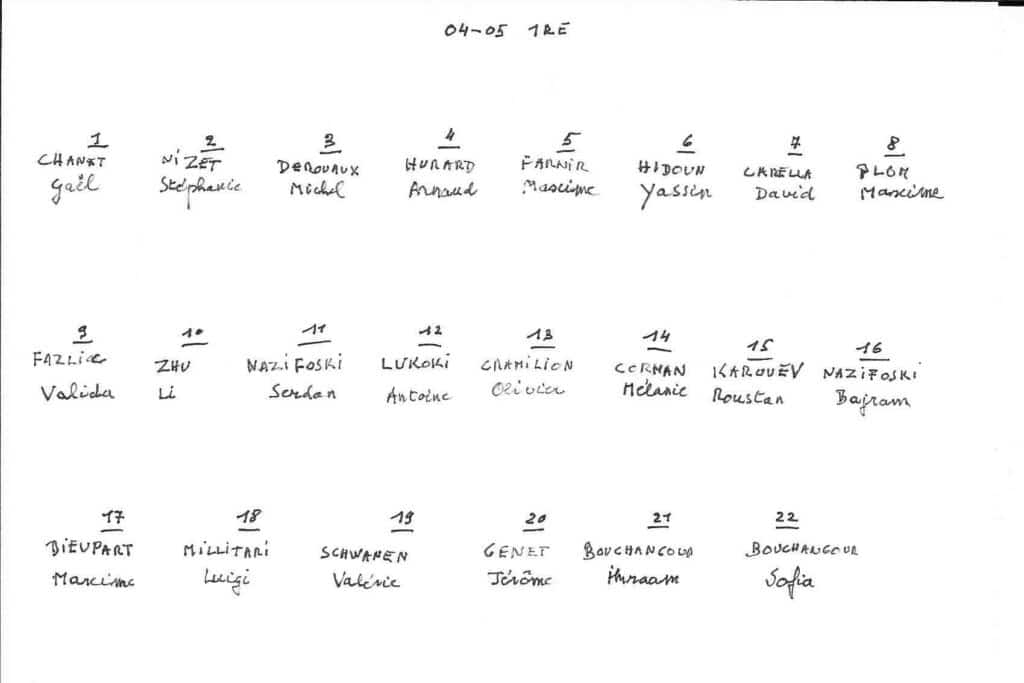 04-05 1RE
1 2 3 4 5 6 7 8
NIZET DEROUAUX HURARD FARNIR HIDOUN CARELLA PLOM
Gaël Stéphanie Michel Arnaud Maxime Yassin David Maxime
9 10 11 12 13 14 15 16
ZHU NAZIFOSKI LUKOKI CRAMILION CORMAN KAROUEV NAZIFOSKI
Valida Li Serdan Antoine Olivier Mélanie Roustan Bajram
17 18 19 20 21 22
DIEUPART MILLITARI SCHWANEN GENET BOUCHANGOUR BOUCHANGOUR
Maxime Luigi Valérie Jérôme Sofia